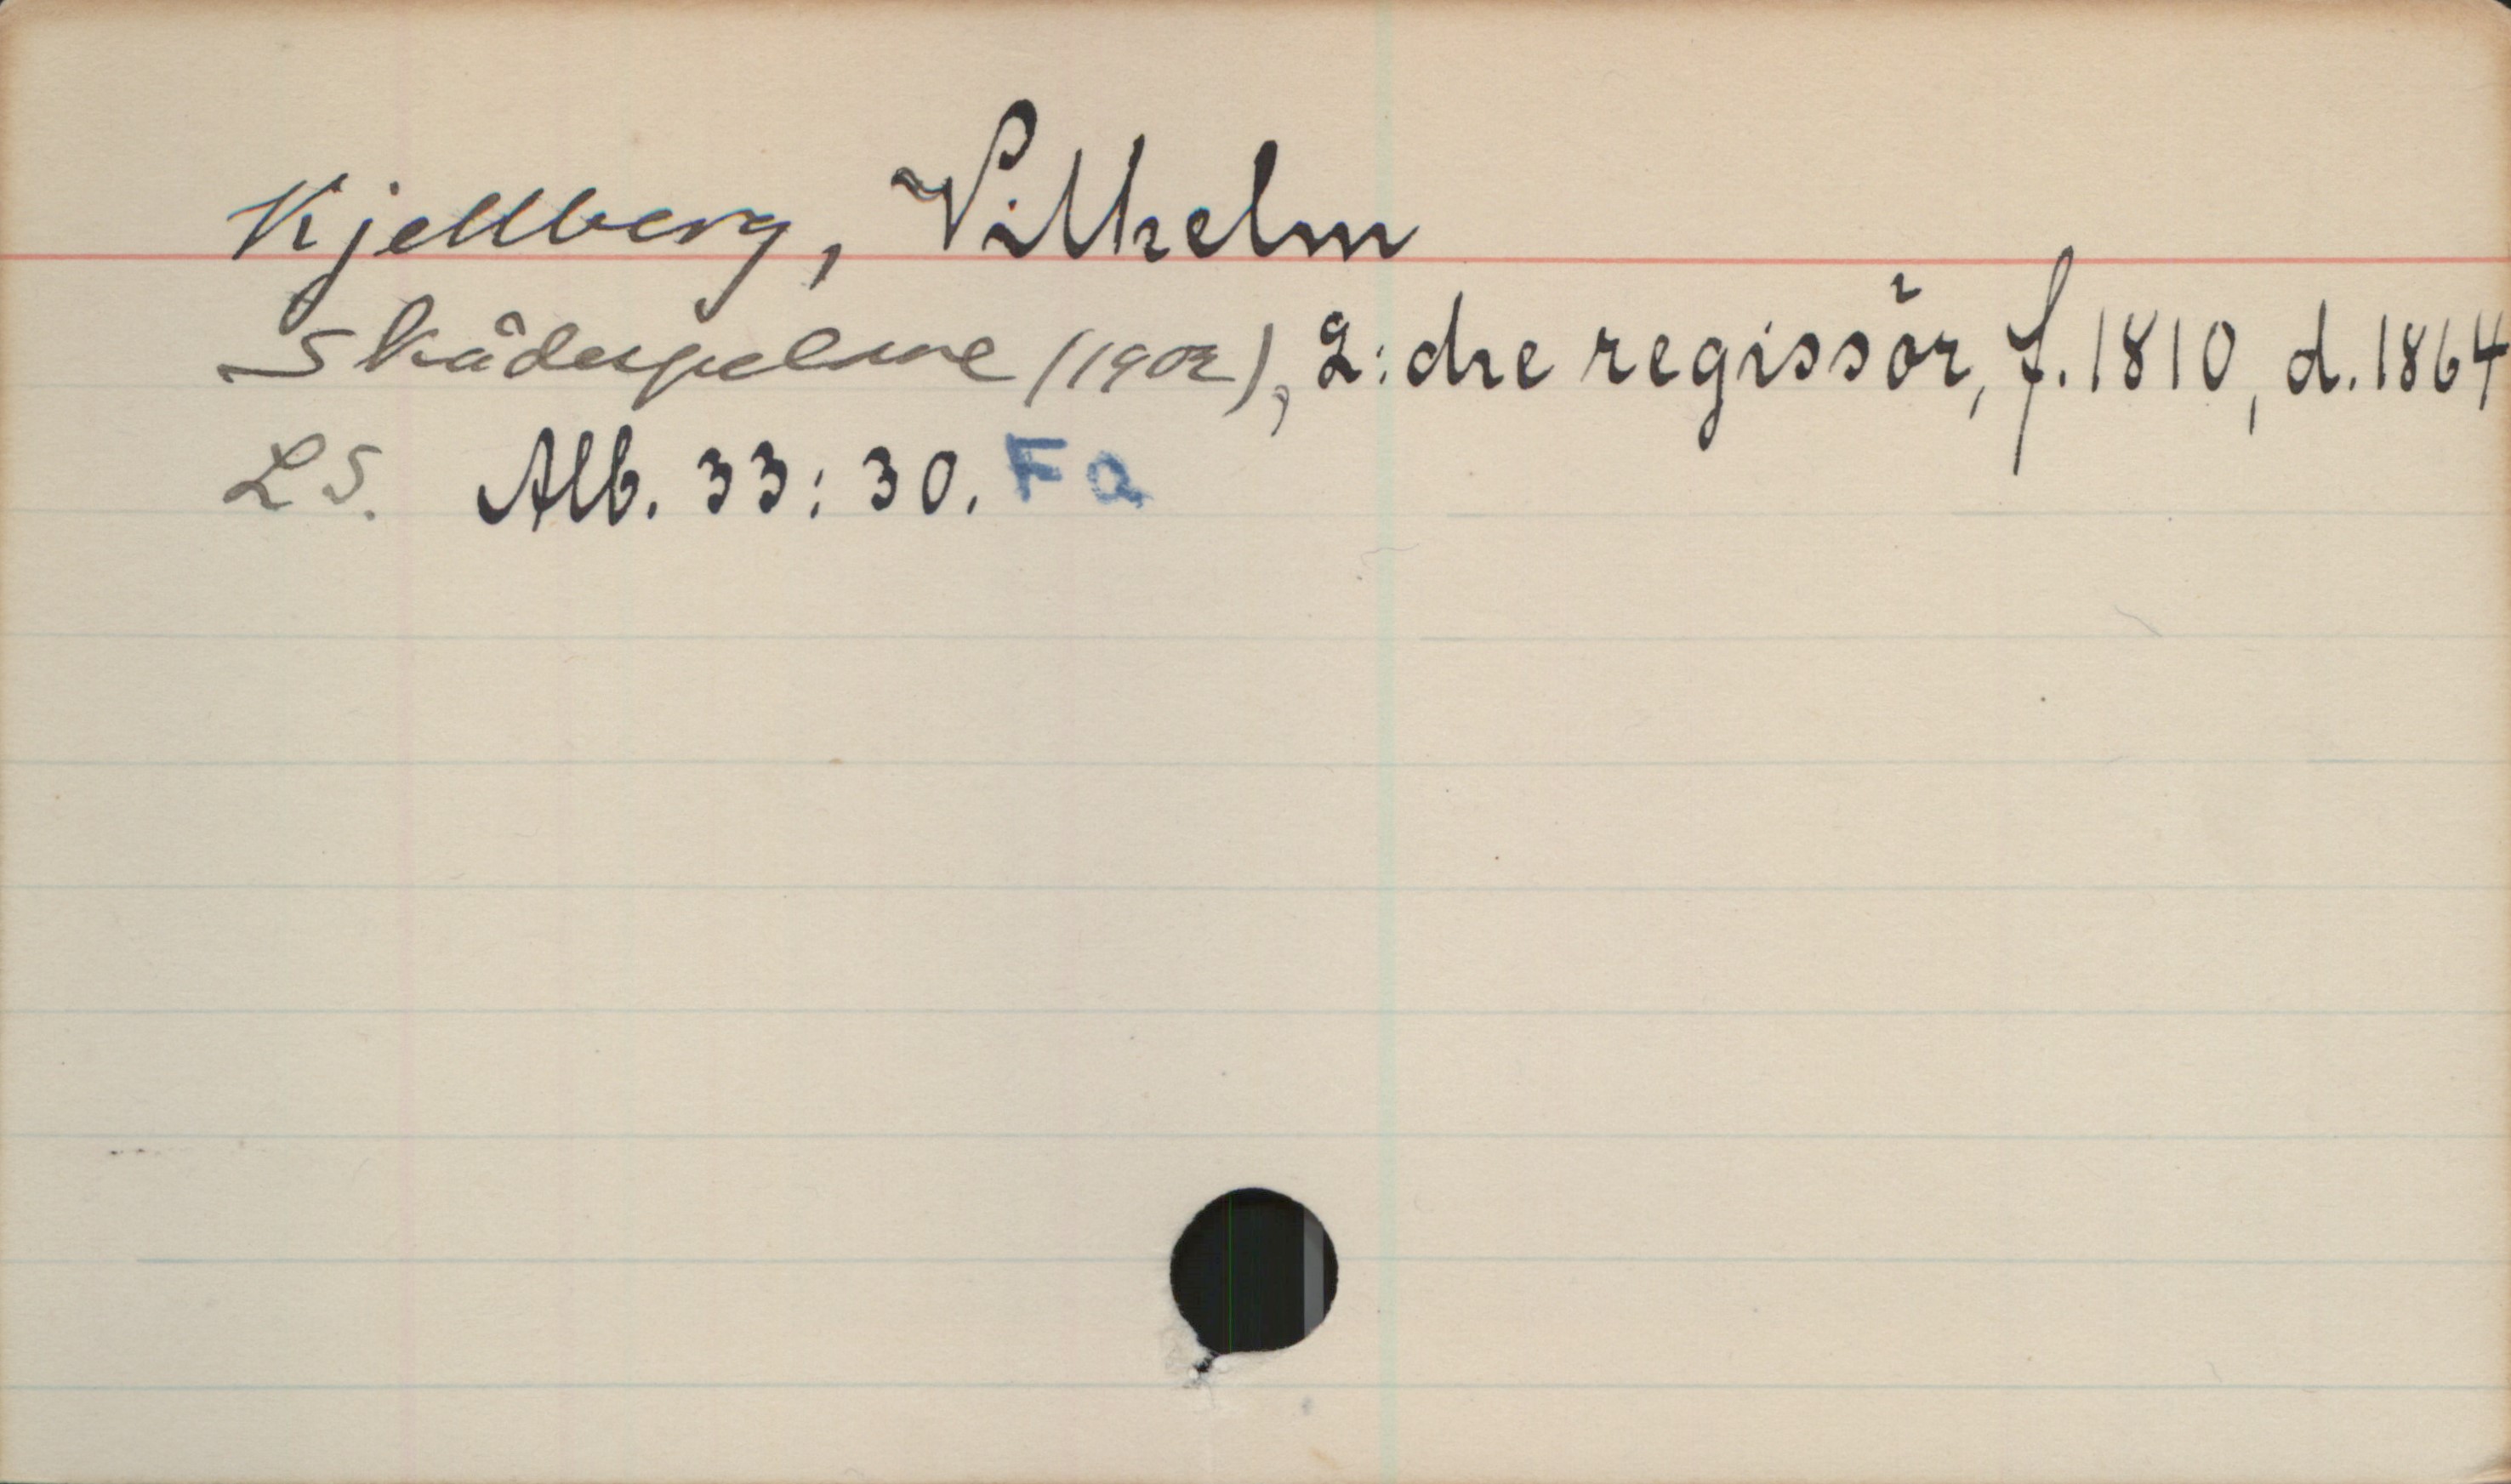 Kjellberg, Vilhelm
Skådespelare (1902), 2:dre regissör, f. 1810, d. 1864
LS. Alb. 33:30. Fa